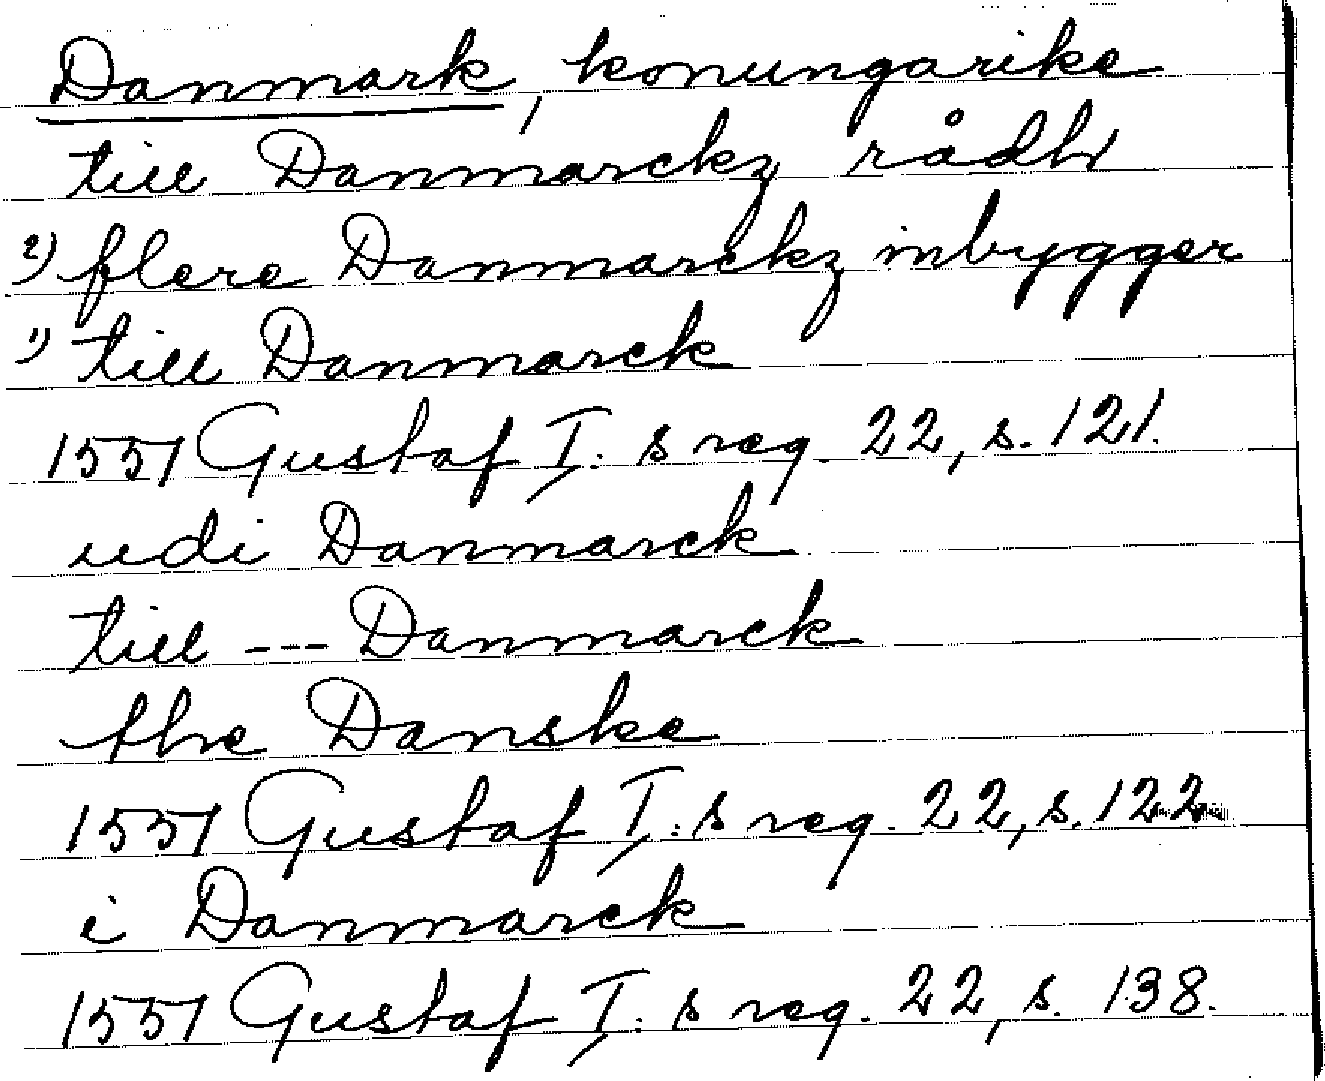 Danmark, konungarike
till Danmarckz rådh
2) flere Danmarckz inbygger
1) till Danmarck
1551 Gustaf I:s reg. 22, s. 121.
udi Danmarck
till --- Danmarck
the Danske
1551 Gustaf I:s reg. 22, s. 122
i Danmarck
1551 Gustaf I:s reg. 22, s. 138.